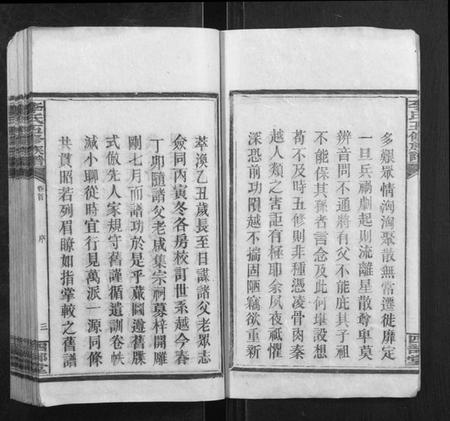 李氏五修族譜
多艱眾情洶洶聚散無常遷徙靡定
一旦兵禍劇起則流離星散尊卑莫
辨音問不通將有父不能庇其子祖
不能保其孫者言念及此何堪設想
苟不及時五修則非種憑凌骨肉秦
越人類之害詎有極耶余夙夜祗懼
深恐前功隕越不揣固陋竊欲重新
萃渙乙丑歲長至日謀諸父老眾志
僉同丙寅冬各房校訂世系越今春
丁卯隨諸父老咸集宗祠募梓開雕
剛七月而諸功於是乎蕆圖遵舊牒
式倣先人家規守舊謹循遺訓卷帙
減小聊從時宜行見萬派一源同條
共貫昭若列眉瞭如指掌較之舊譜
李氏五修族譜
卷首
序
三